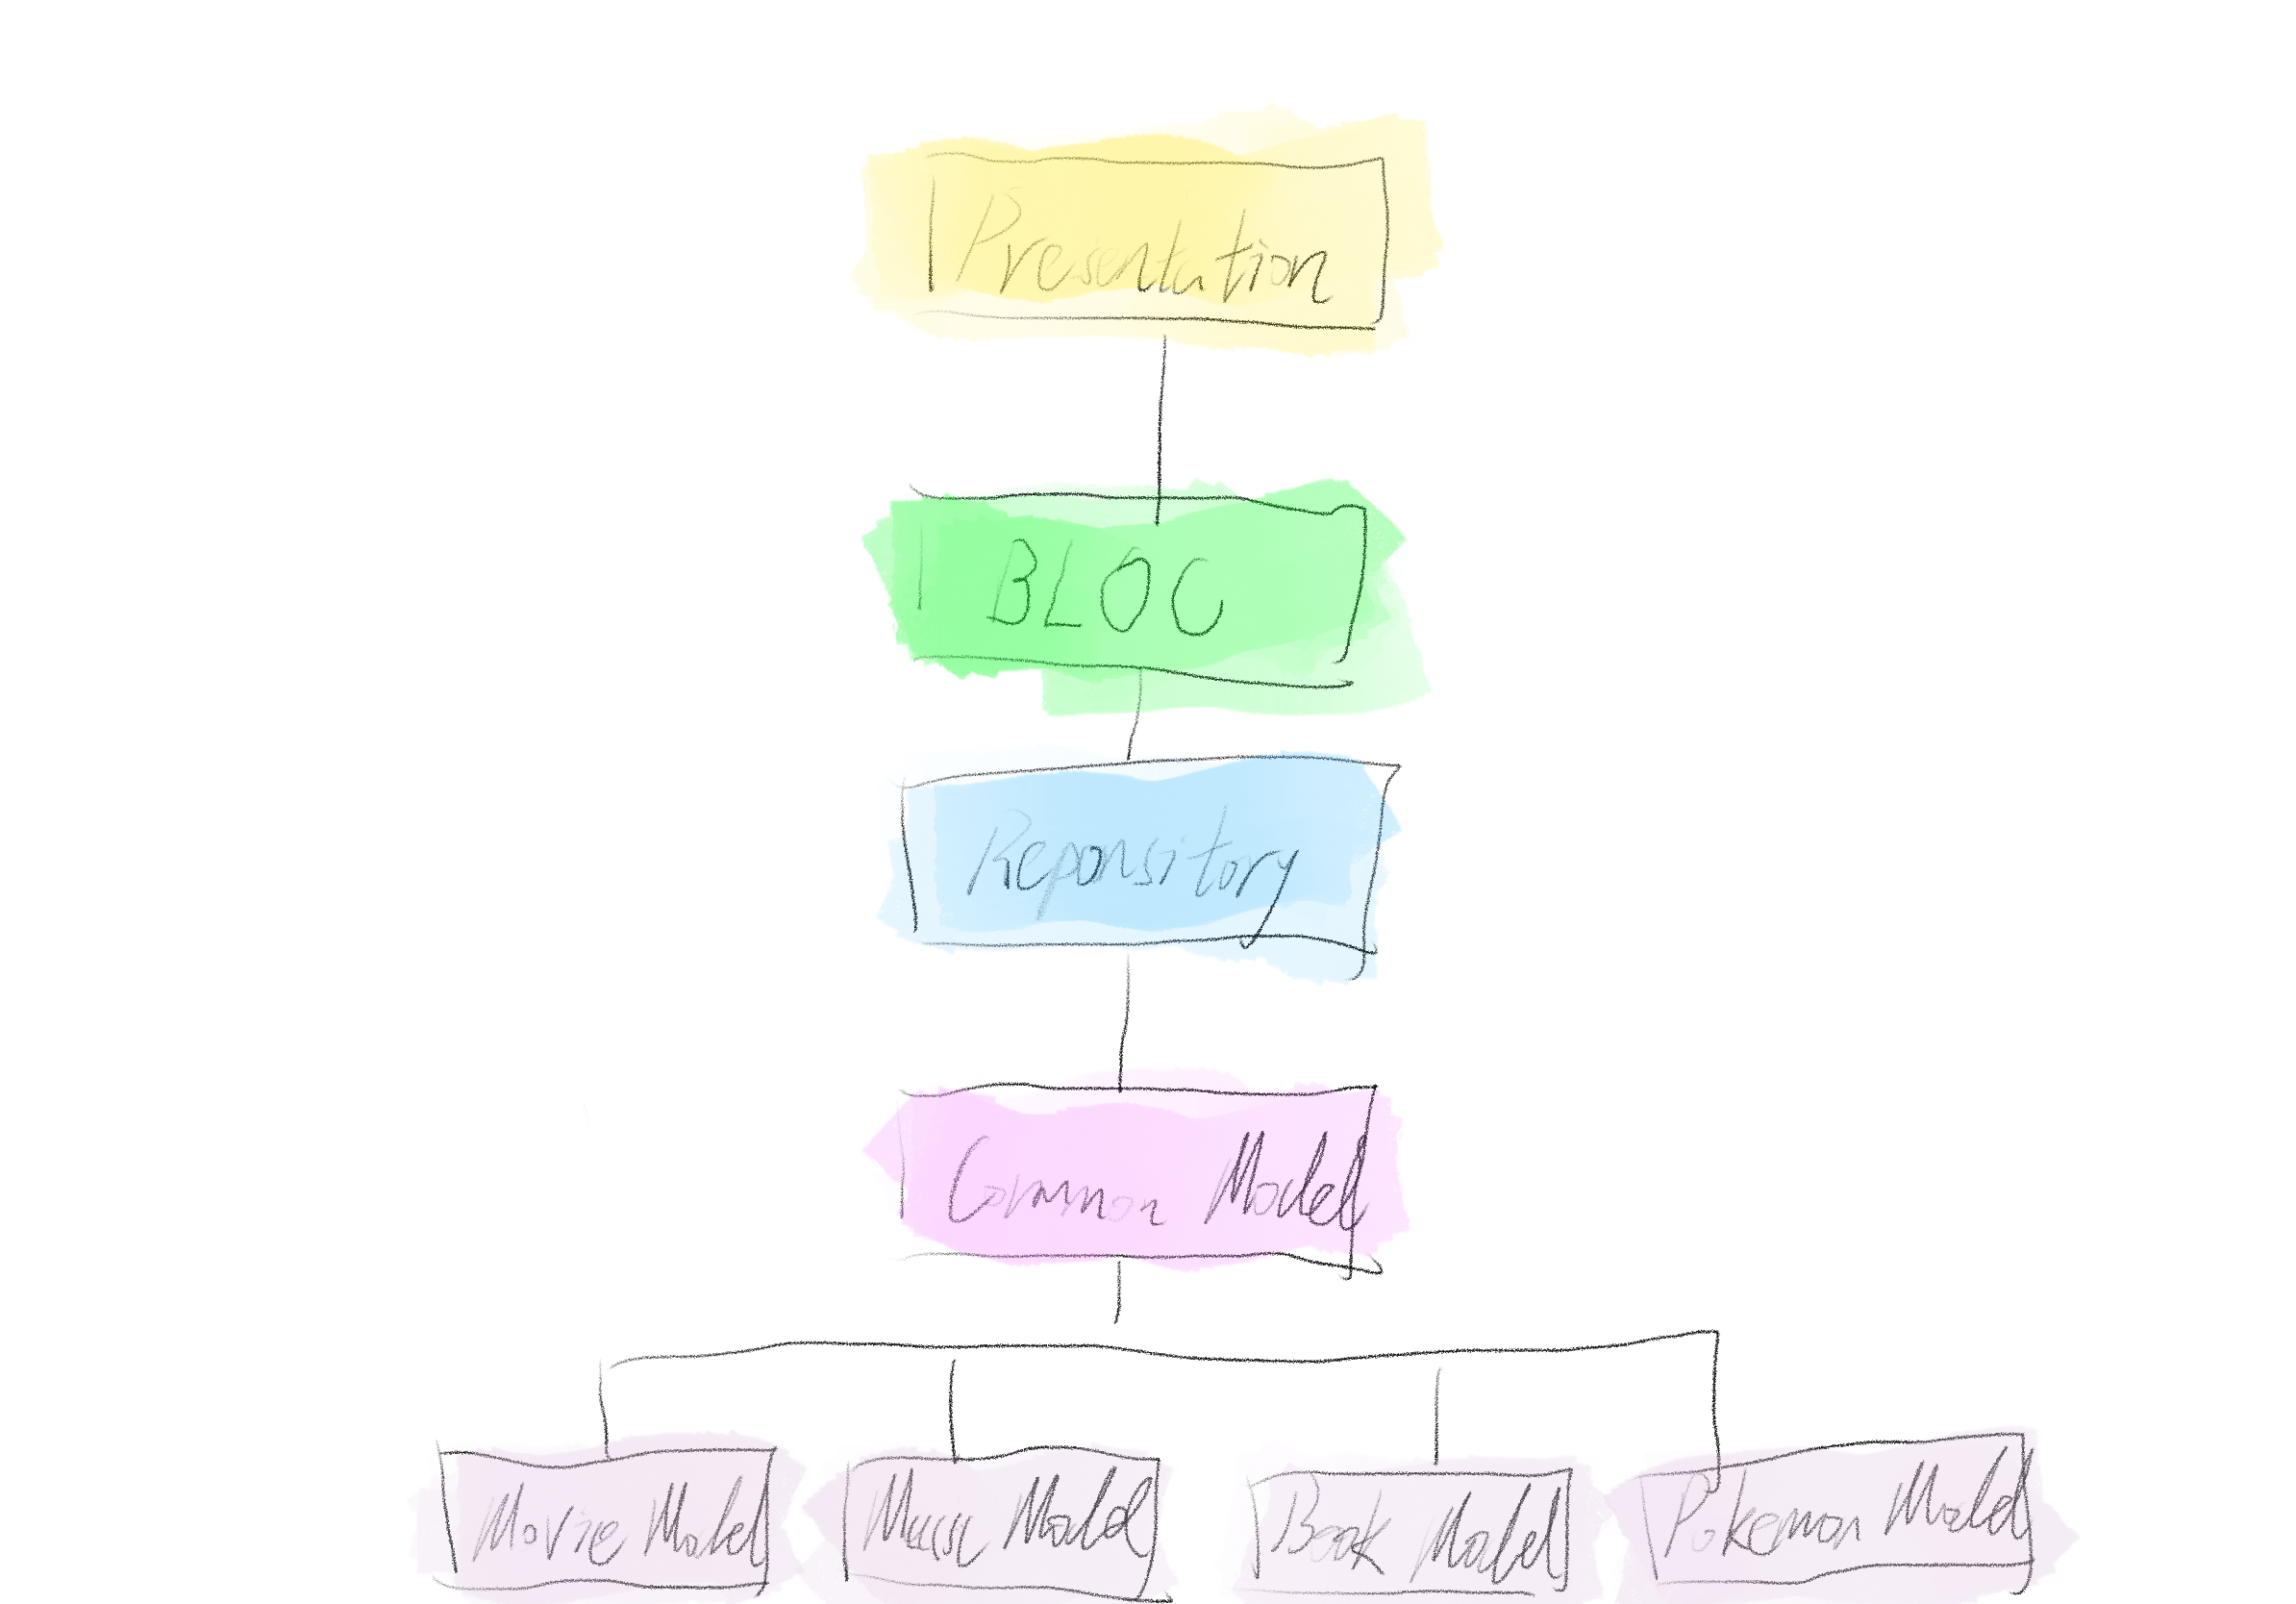 Presentation
BLOC
Reponsitory
Common Model
Movie Model
Music Model
Book Model
Pokemon Model